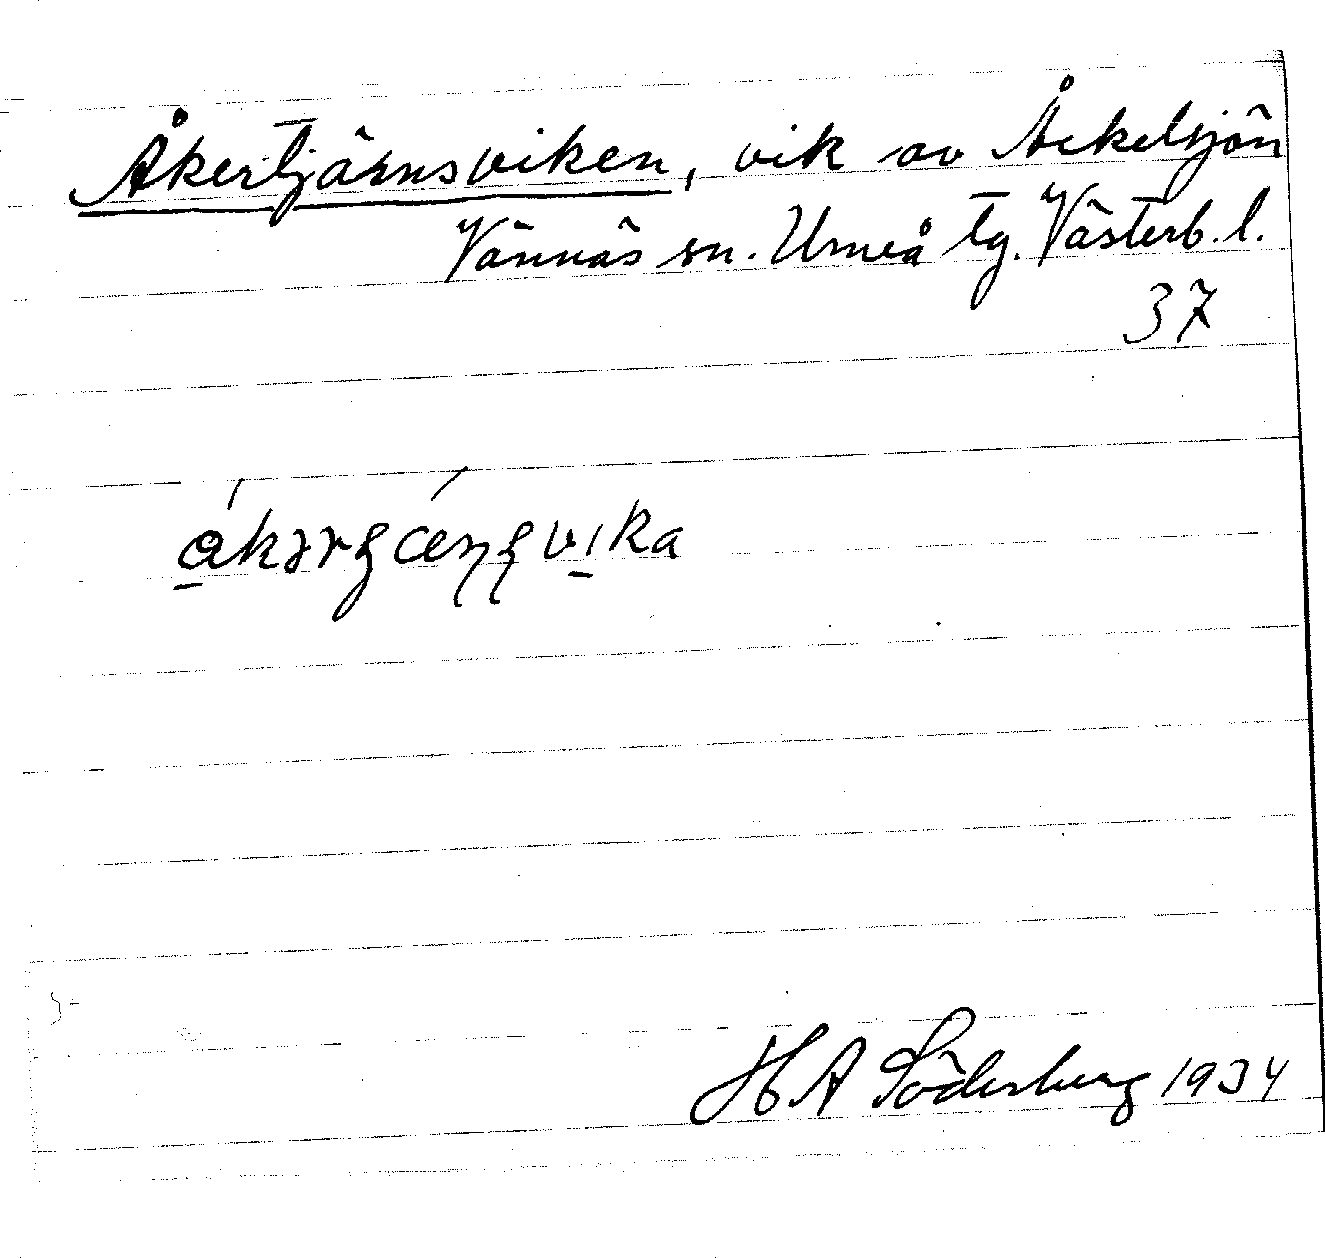 Åkertjärnsviken, vik av Åckelsjön
Vännäs sn. Umeå tg. Västerb. l.
37
H A Söderberg 1934